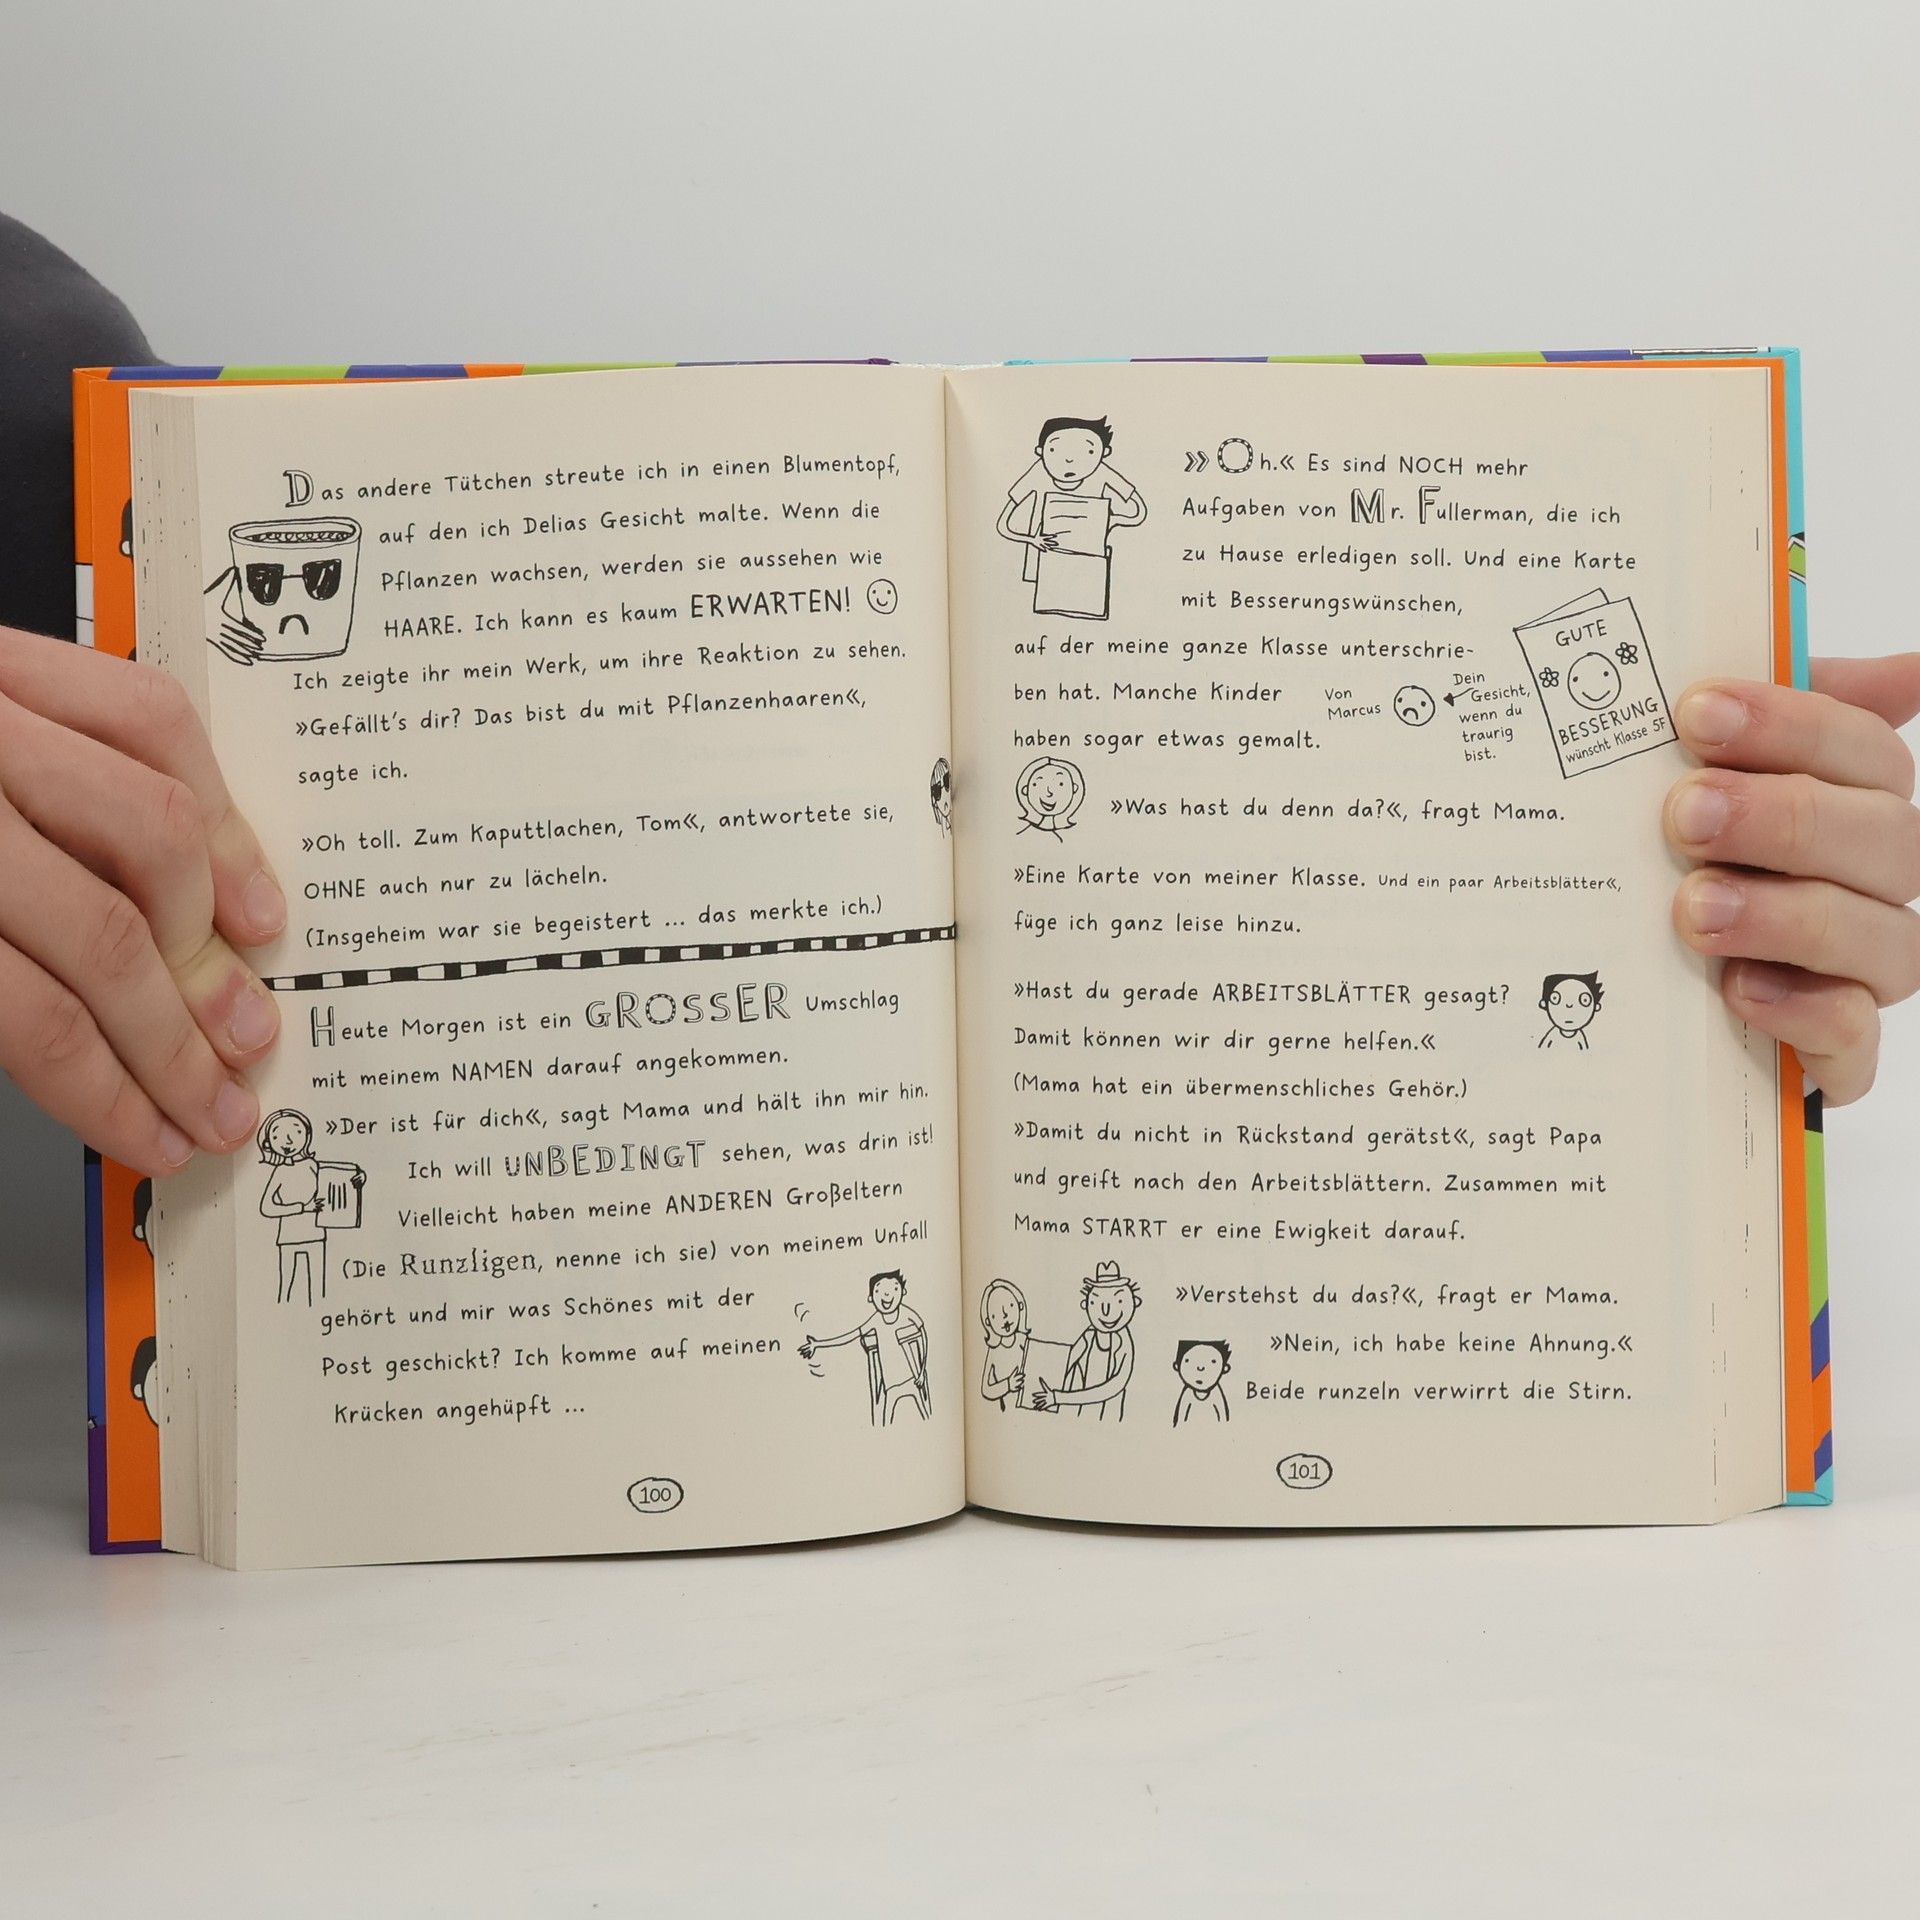 Das andere Tütchen streute ich in einen Blumentopf,
auf den ich Delias Gesicht malte. Wenn die
Pflanzen wachsen, werden sie aussehen wie
HAARE. Ich kann es kaum ERWARTEN!
Ich zeigte ihr mein Werk, um ihre Reaktion zu sehen.
»Gefällt's dir? Das bist du mit Pflanzenhaaren«,
sagte ich.
»Oh toll. Zum Kaputtlachen, Tom«, antwortete sie,
OHNE auch nur zu lächeln.
(Insgeheim war sie begeistert ... das merkte ich.)
Heute Morgen ist ein GROSSER Umschlag
mit meinem NAMEN darauf angekommen.
»Der ist für dich«, sagt Mama und hält ihn mir hin.
Ich will UNBEDINGT sehen, was drin ist!
Vielleicht haben meine ANDEREN Großeltern
(Die Runzligen, nenne ich sie) von meinem Unfall
gehört und mir was Schönes mit der
Post geschickt? Ich komme auf meinen
Krücken angehüpft ...
100
»Oh.« Es sind NOCH mehr
Aufgaben von Mr. Fullerman, die ich
zu Hause erledigen soll. Und eine Karte
mit Besserungswünschen,
auf der meine ganze Klasse unterschrie-
ben hat. Manche Kinder
haben sogar etwas gemalt.
Von
Marcus
Dein
Gesicht,
wenn du
traurig
bist.
GUTE
BESSERUNG
wünscht Klasse 5F
»Was hast du denn da?«, fragt Mama.
»Eine Karte von meiner Klasse. Und ein paar Arbeitsblätter«,
füge ich ganz leise hinzu.
»Hast du gerade ARBEITSBLÄTTER gesagt?
Damit können wir dir gerne helfen.«
(Mama hat ein übermenschliches Gehör.)
»Damit du nicht in Rückstand gerätst«, sagt Papa
und greift nach den Arbeitsblättern. Zusammen mit
Mama STARRT er eine Ewigkeit darauf.
»Verstehst du das?«, fragt er Mama.
»Nein, ich habe keine Ahnung.«
Beide runzeln verwirrt die Stirn.
101